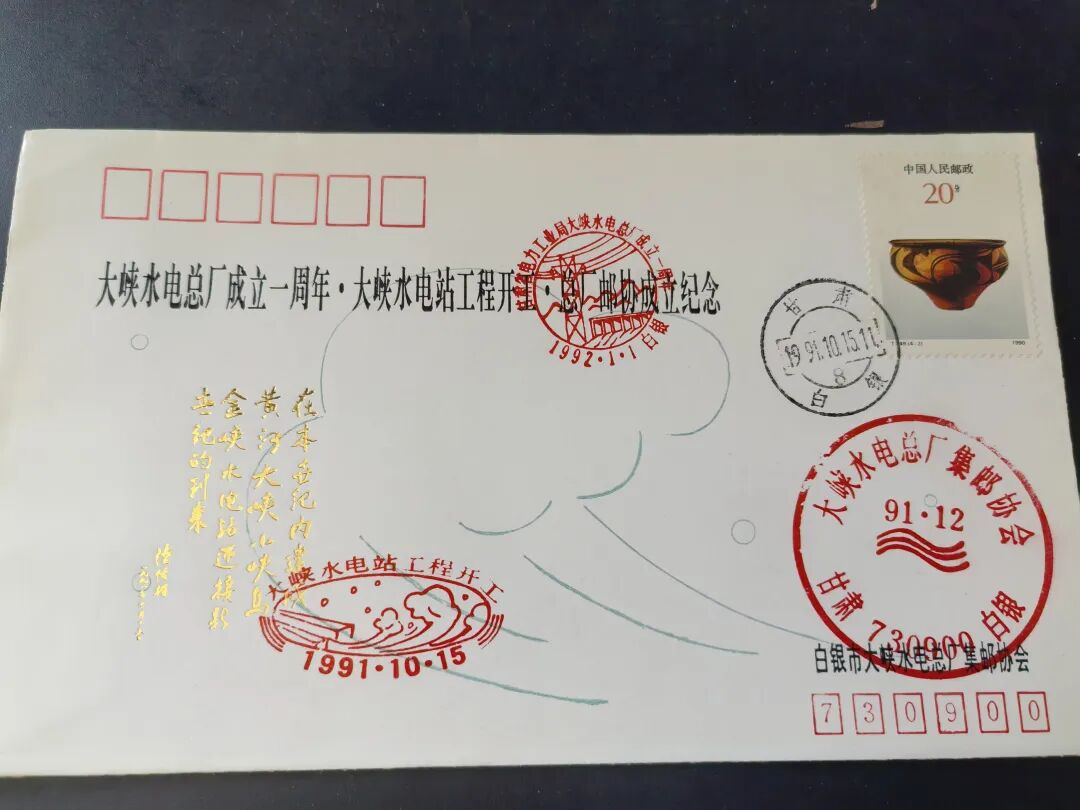 中国人民邮政
20分
1990
大峡水电总厂成立一周年·大峡水电站工程开工·总厂邮协成立纪念
电力工业局大峡水电总厂成立一周年
1992·1·1
白银
甘肃
1991.10.15.11
8
白银
在本世纪内建成
黄河大峡小峡乌
金峡水电站迎接新
世纪的到来
大峡水电站工程开工
1991·10·15
大峡水电总厂集邮协会
91·12
甘肃 730900 白银
白银市大峡水电总厂集邮协会
730900